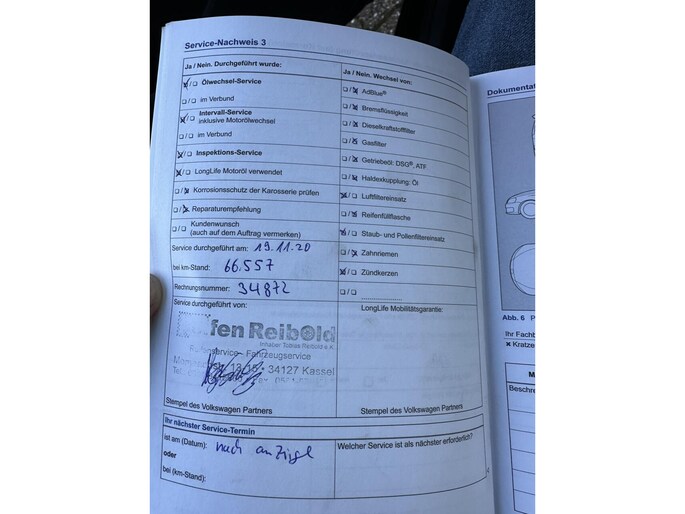 Service-Nachweis 3
Ja / Nein. Durchgeführt wurde:
Ölwechsel-Service
im Verbund
Intervall-Service
inklusive Motorölwechsel
im Verbund
Inspektions-Service
LongLife Motoröl verwendet
Korrosionsschutz der Karosserie prüfen
Reparaturempfehlung
Kundenwunsch
(auch auf dem Auftrag vermerken)
Service durchgeführt am: 19.11.20
bei km-Stand: 66.557
Rechnungsnummer: 34872
Service durchgeführt von:
fen Reibold
Inhaber Tobias Reibold e.K.
service - Fahrzeugservice
34127 Kassel
Stempel des Volkswagen Partners
Ja / Nein. Wechsel von:
AdBlue®
Bremsflüssigkeit
Dieselkraftstofffilter
Gasfilter
Getriebeöl: DSG®, ATF
Haldexkupplung: Öl
Luftfiltereinsatz
Reifenfüllflasche
Staub- und Pollenfiltereinsatz
Zahnriemen
Zündkerzen
LongLife Mobilitätsgarantie:
Stempel des Volkswagen Partners
Ihr nächster Service-Termin
ist am (Datum): nach anzeige
oder
bei (km-Stand):
Welcher Service ist als nächster erforderlich?
Dokumentat
Abb. 6 P
Ihr Fachb
Kratze
Beschre